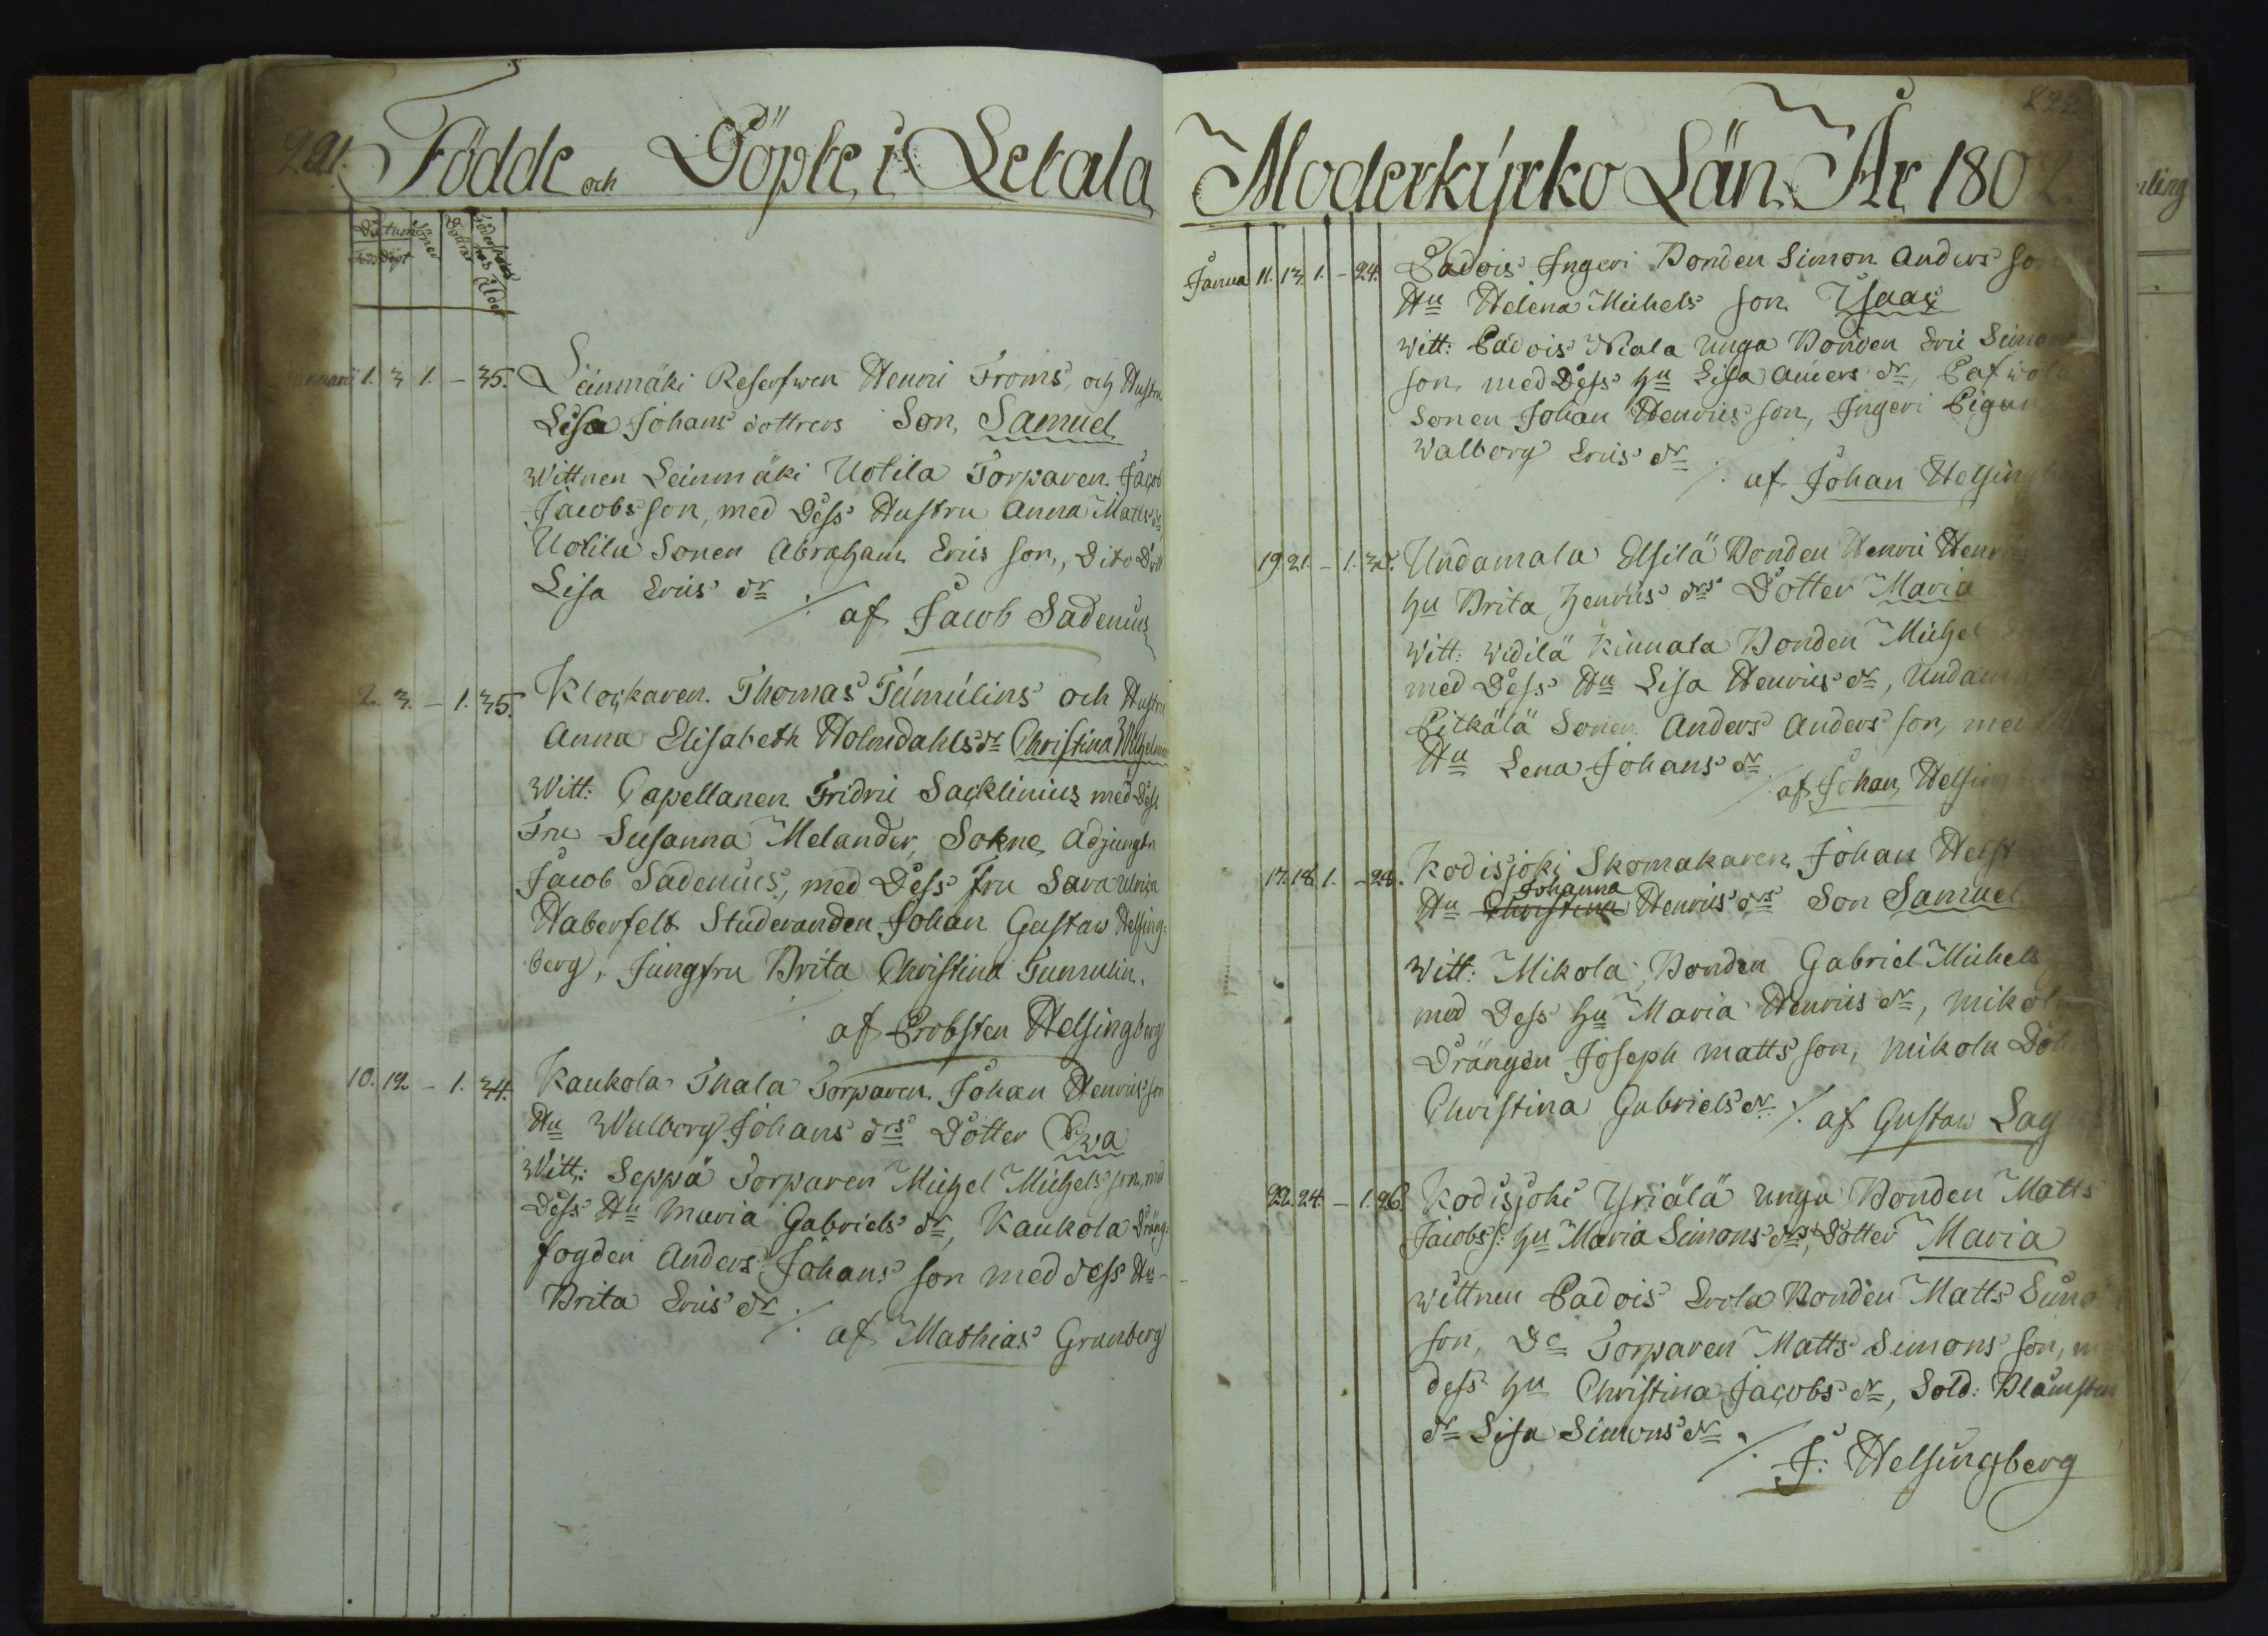 221.
Födde och Döpte, i Letala
Datum
Född Döpt
Söner
Döttrar
Ålder
1. 3 1. - 35. Leinmäki Reserfwen Henric Froms, och Hustru
Lisa Johans dottrers Son, Samuel
Wittnen Leinmäki Uotila Torparen Jacob
Jacobs son, med Dess Hustru Anna Matts dr
Uotila Sonen Abraham Erics son, Dito
Lisa Erics dr ⁒ af Jacob Sadenius
2. 3. - 1. 35. Klockaren Thomas Tumulins och Hustru
Anna Elisabeth Holmdahls dr Christina Wilhelmina
Witt: Capellanen Fridric Sacklinius med Dess
Fru Susanna Melander, Sokne Adjuncten
Jacob Sadenius, med Dess Fru Sara Ulrica
Haberfelt Studeranden Johan Gustaw Helsing-
berg, Jungfru Brita Christina Tumulin.
af Probsten Helsingberg
10. 12 - 1. 34. Kaukola Torparen Johan Henrics son
Hu Walborg Johans drs Dotter Ewa
Witt: Seppä Torparen Michel Michels son, med
Dess Hu Maria Gabriels dr, Kaukola Dräng-
fogden Anders Johans son med dess Hu
Brita Erics dr ⁒
af Mathias Grunberg
Moderkyrko Län. År 1802.
Janua 11. 13. 1. - 24. Padois Ingeri Bonden Simon Anders
Hu Helena Michels son Isaac
Witt: Padois unga Bonden Eric Simons
son, med Dess hu Lisa dr,
Sonen Johan Henrics son, Ingeri Pigan
Walborg Erics dr ⁒ af Johan
19. 21. - 1. Undamala Elsilä Bonden Henric
hu Brita Henrics drs Dotter Maria
Witt: Widilä Kinnala Bonden Michel
med Dess Hu Lisa Henrics dr,
Pitkälä Sonen Anders Anders son, med
Hu Lena Johans dr
⁒ af Johan
17. 18. 1. - 28. Kodisjoki Skomakaren Johan
Johanna
Hu Christina Henrics drs Son Samuel
Witt: Mikola Bonden Gabriel Michels
med Dess hu Maria Henrics dr,
Drängen Joseph Matts son, Mikola
Christina Gabriels dr ⁒ af Gustaw
22. 24. - 1. 26. Kodisjoki Yriälä unga Bonden Matts
Jacobs s: hu Maria Simons drs, Dotter Maria
Wittnen Padois Erola Bonden Matts
son, Do Torparen Matts Simons son,
dess hu Christina Jacobs dr, Sold:
dr Lisa Simons dr ⁒
J: Helsingberg